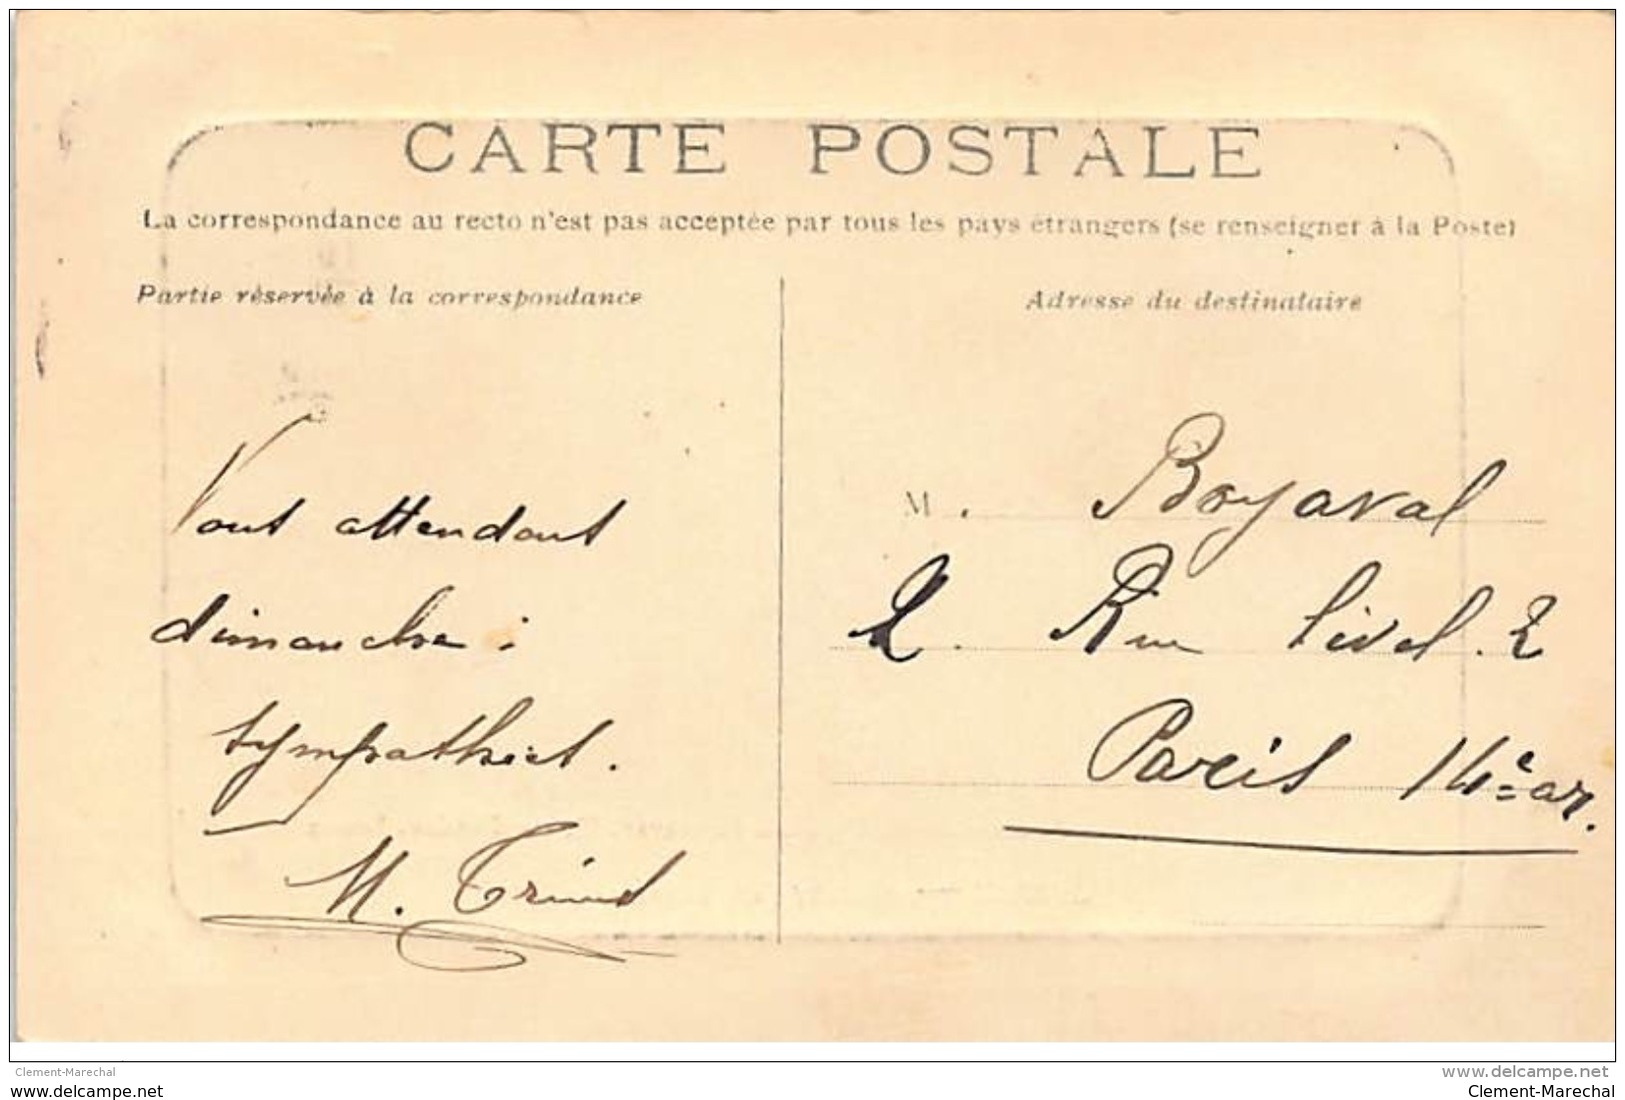 CARTE POSTALE
La correspondance au recto n'est pas acceptée par tous les pays étrangers (se renseigner à la Poste)
Partie réservée à la correspondance
Adresse du destinataire
Vous attendons
dimanche :
sympathies.
M.
M. Boyaval
2. Rue Livel. 2
Paris 14e ar.
Clement-Marechal
www.delcampe.net
Clement-Marechal
www.delcampe.net
Clement-Marechal